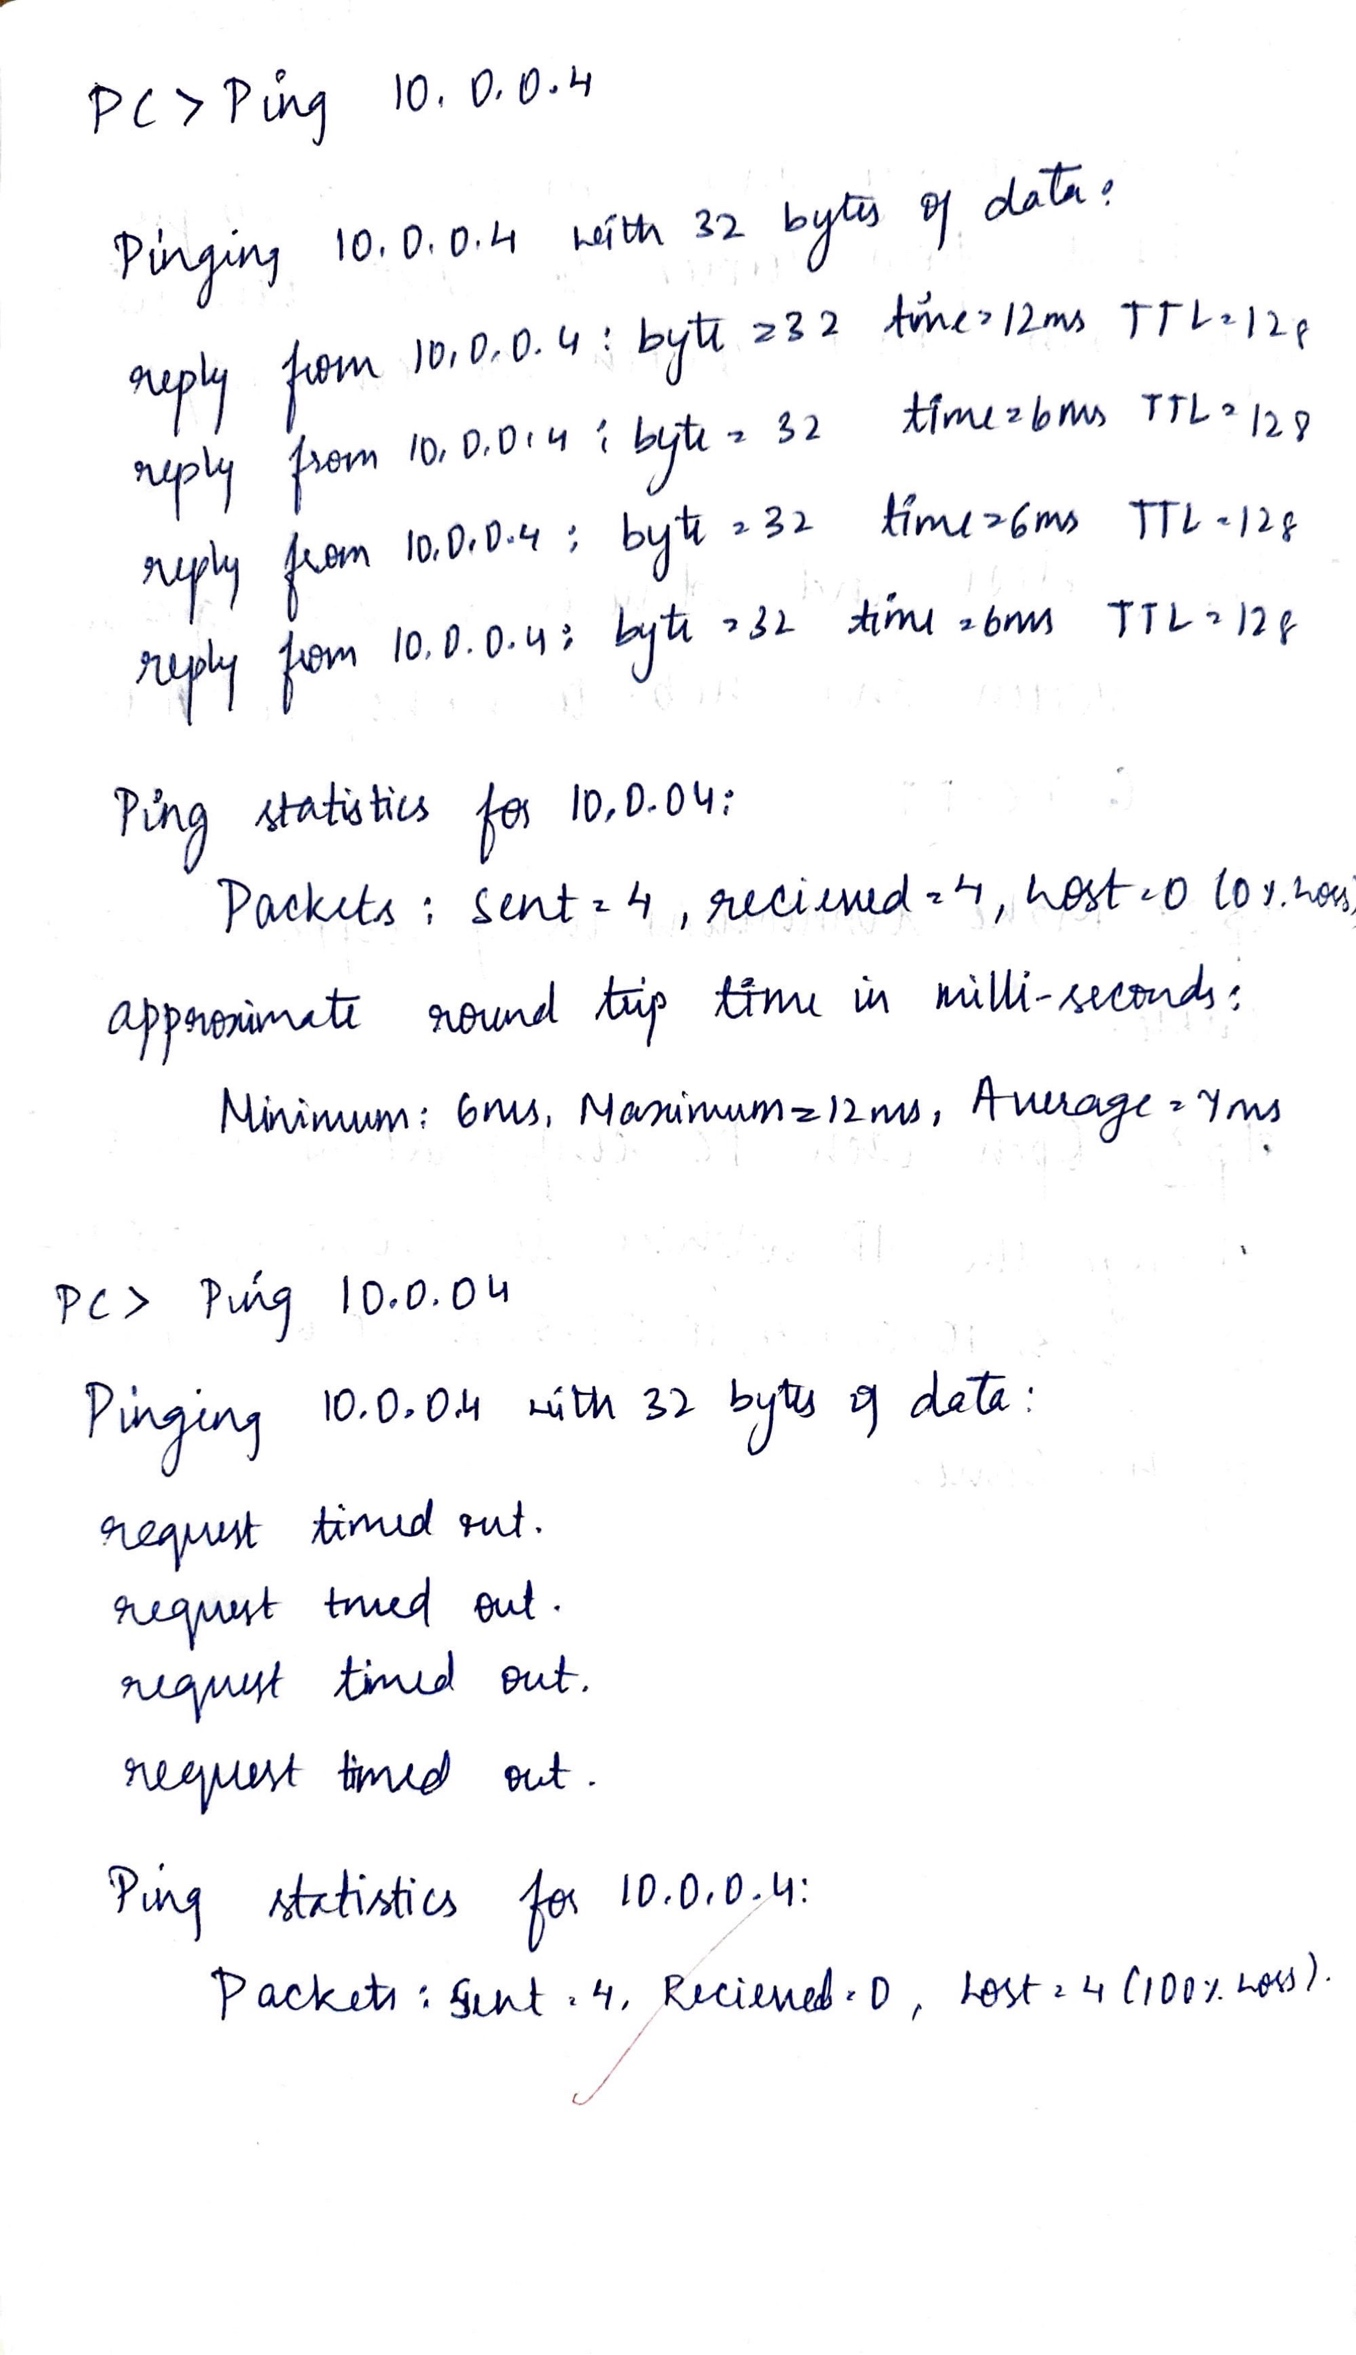 PC> Ping 10.0.0.4
Pinging 10.0.0.4 with 32 bytes of data:
reply from 10.0.0.4: byte=32 time=12ms TTL=128
reply from 10.0.0.4: byte=32 time=6ms TTL=128
reply from 10.0.0.4: byte=32 time=6ms TTL=128
reply from 10.0.0.4: byte=32 time=6ms TTL=128
Ping statistics for 10.0.04:
Packets: Sent=4, recieved=4, Lost=0 (0% Loss)
approximate round trip time in milli-seconds:
Minimum: 6ms, Maximum=12ms, Average=7ms
PC> Ping 10.0.04
Pinging 10.0.0.4 with 32 bytes of data:
request timed out.
request timed out.
request timed out.
request timed out.
Ping statistics for 10.0.0.4:
Packets: Sent=4, Recieved=0, Lost=4 (100% Loss).